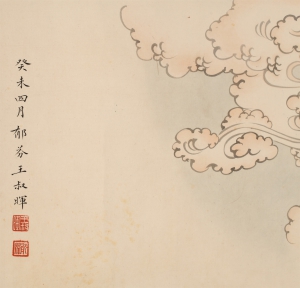 癸未四月郁芬王叔暉